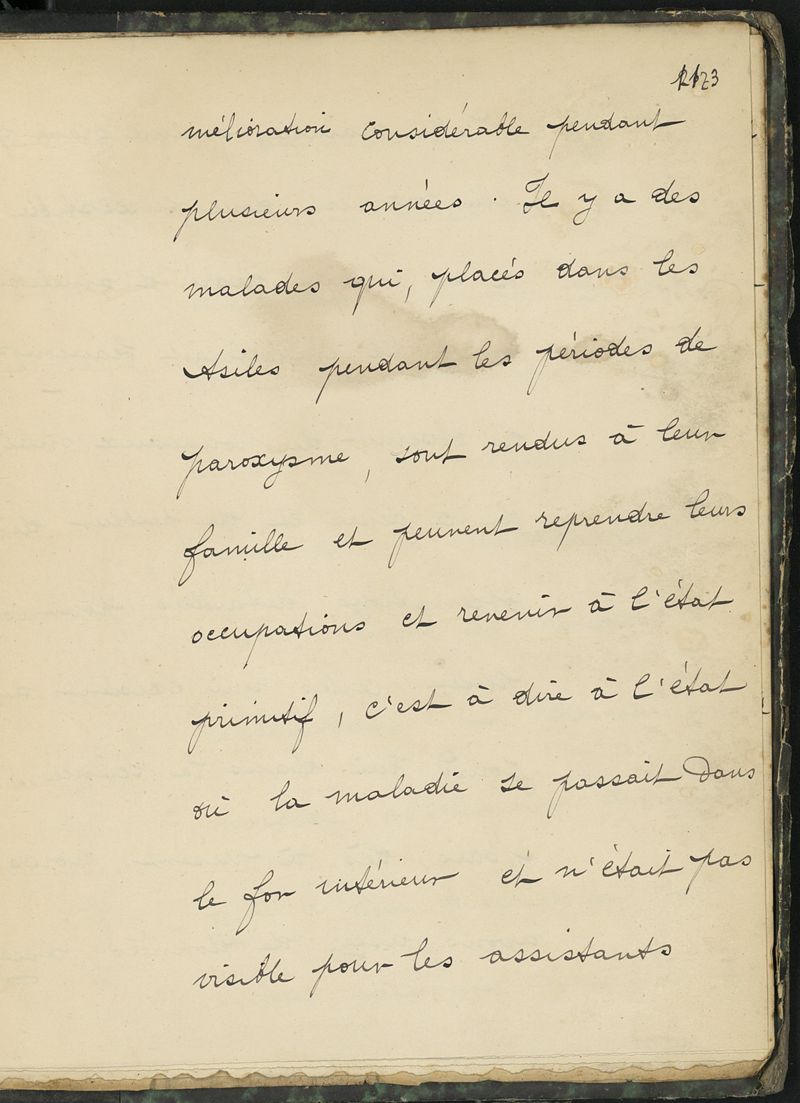 mélioration considérable pendant
plusieurs années. Il y a des
malades qui, placés dans les
Asiles pendant les périodes de
paroxysme, sont rendus à leur
famille et peuvent reprendre leurs
occupations et revenir à l'état
primitif, c'est à dire à l'état
où la maladie se passait dans
le for intérieur et n'était pas
visible pour les assistants